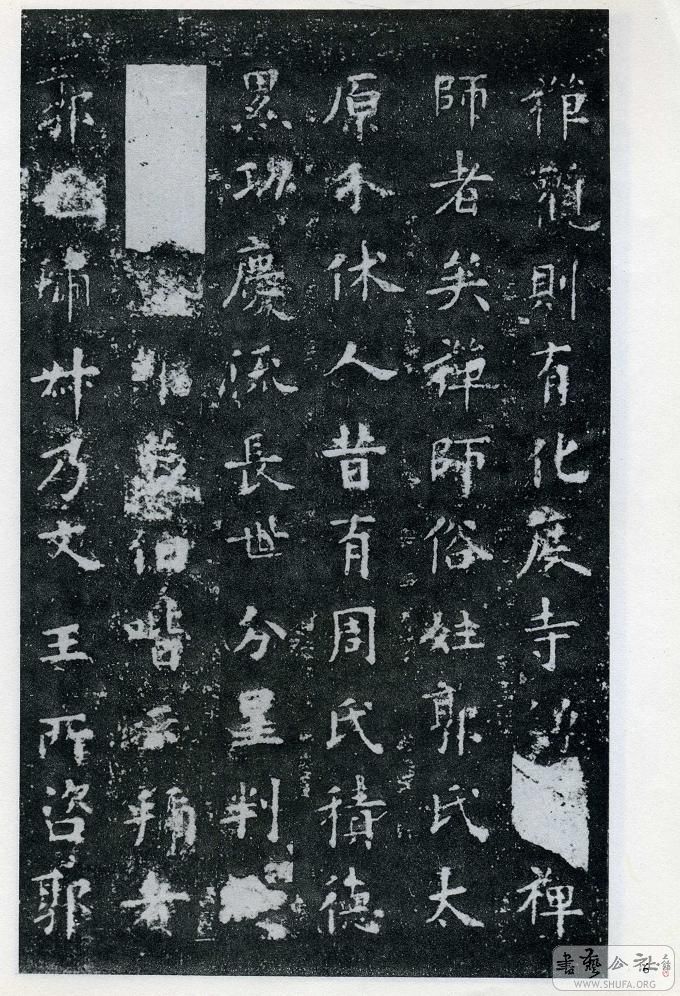 禪觀則有化度寺僧禪
師者矣禪師俗姓郭氏太
原介休人昔有周氏積德
累功慶流長世分星判
蔡伯喈云者
郭叔乃文王所咨郭
書藝公社
WWW.SHUFA.ORG